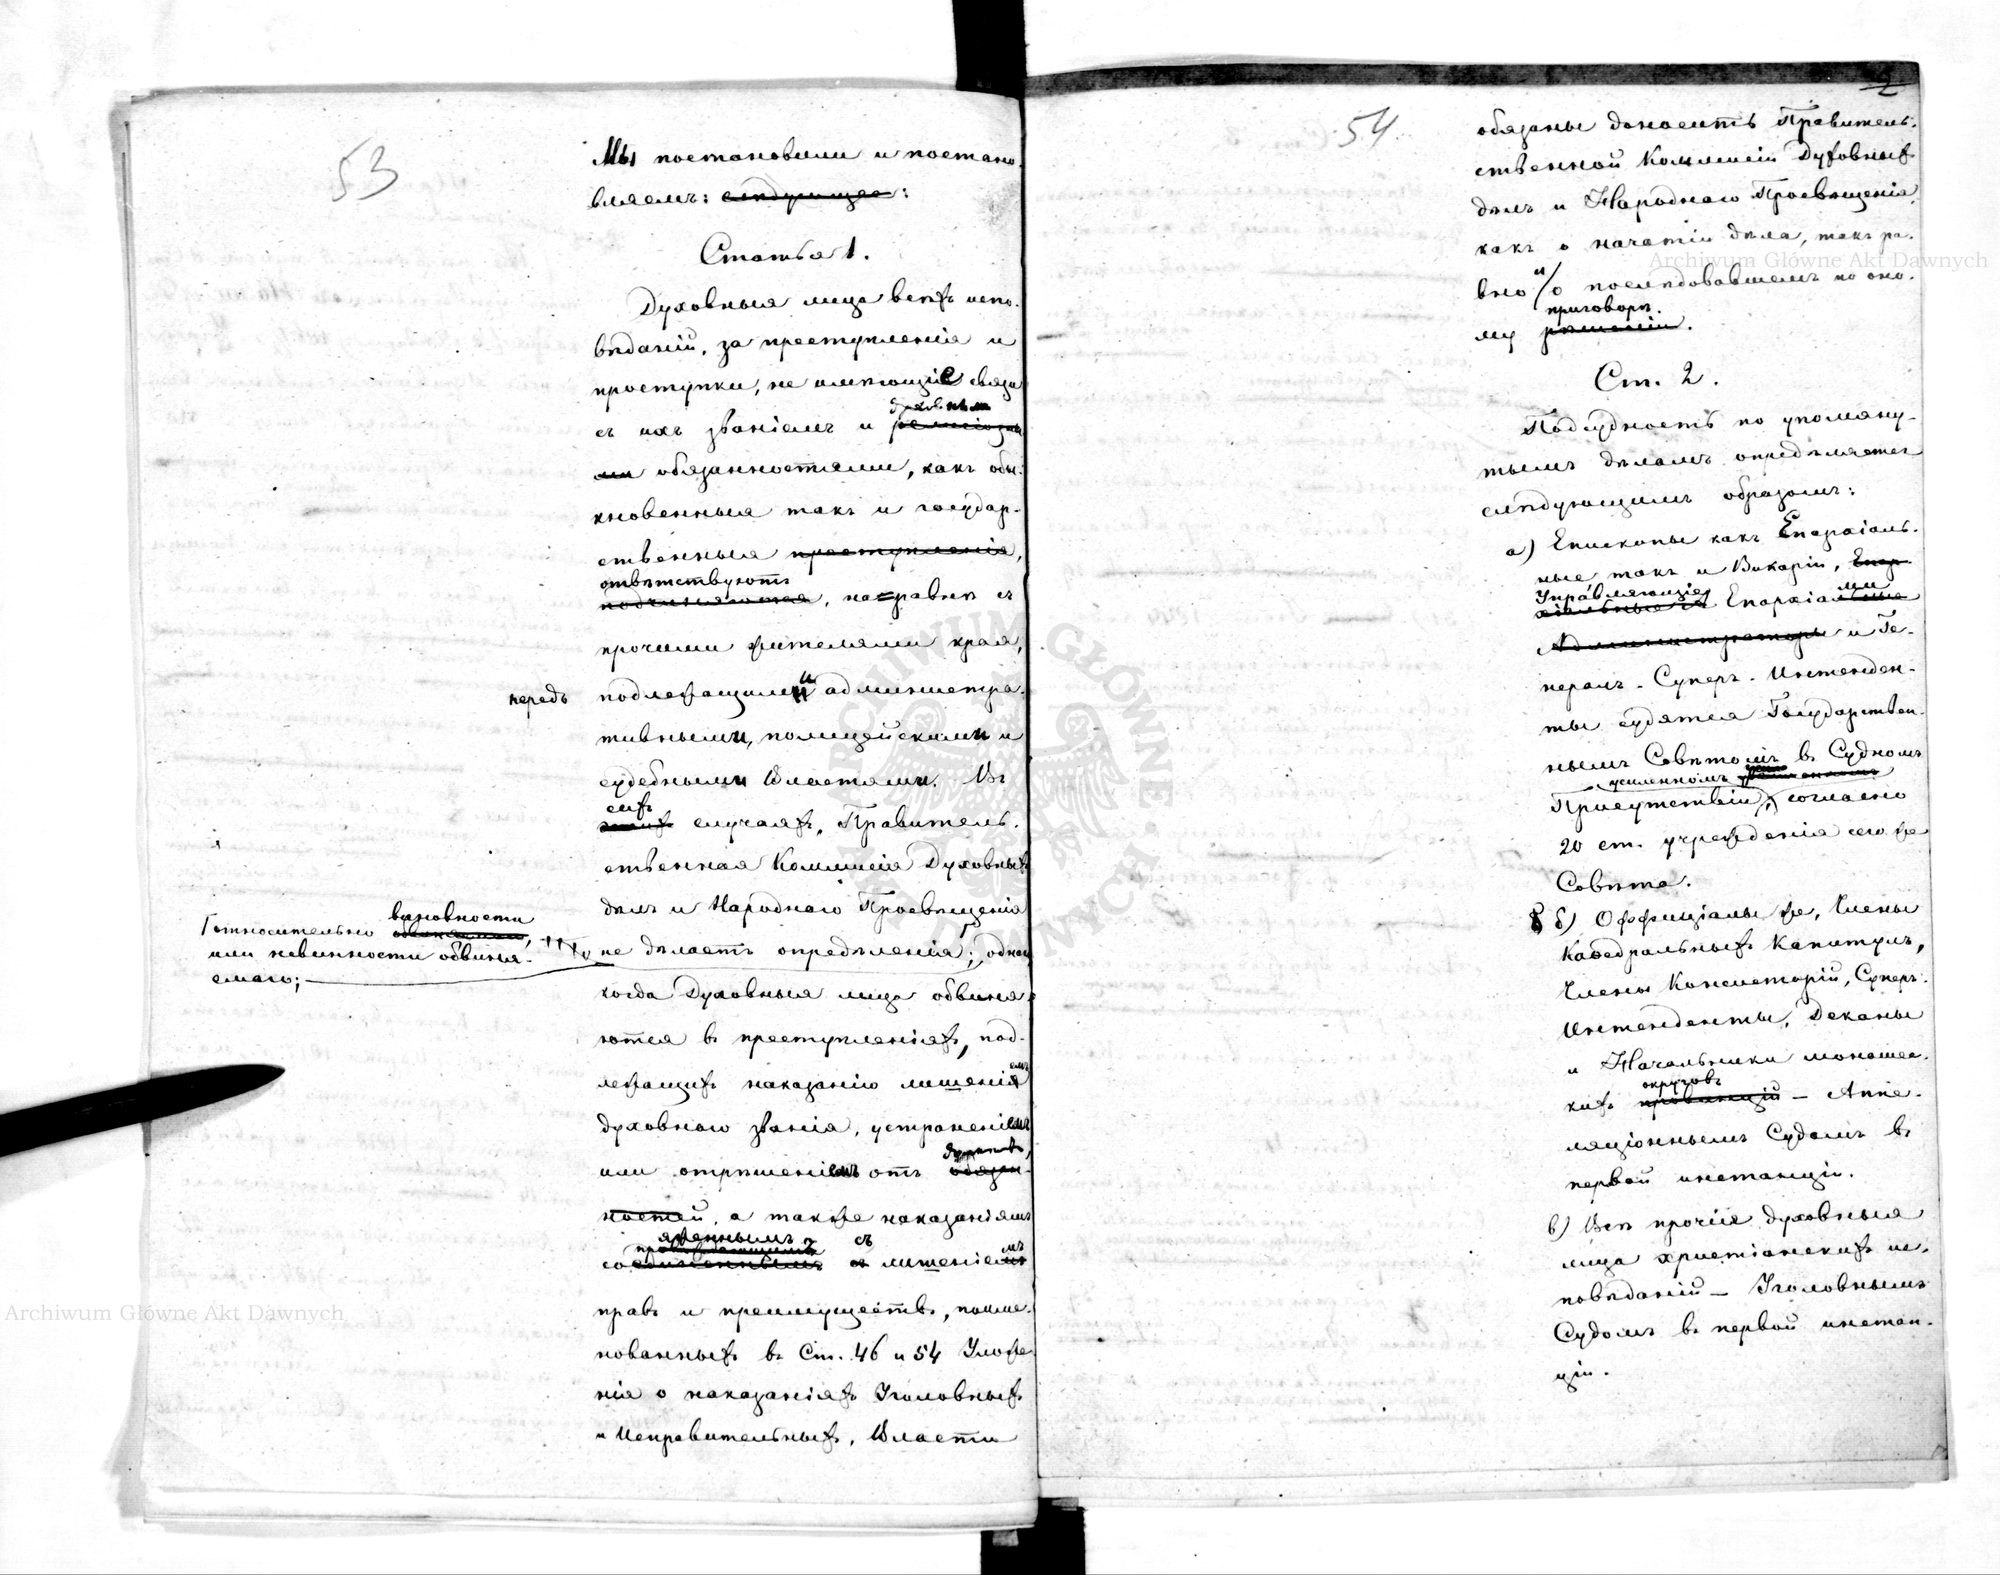 53
Мы постановили и постано-
вляемъ: слѣдующее:
Статья 1.
Духовныя лица всѣхъ испо-
вѣданій, за преступленія и
проступки, не имѣющіе связи
духовными
съ ихъ званіемъ и религіозны
ми обязанностями, какъ обы-
кновенныя такъ и государ-
ственныя преступленія,
отвѣтствуютъ
подчиняются, наравнѣ съ
прочими жителями края,
передъ подлежащими административ-
тивными, полицейскими и
судебными Властями. Въ
сихъ
этихъ случаяхъ, Правитель-
ственная Коммисія Духовныхъ
дѣлъ и Народнаго Просвѣщенія
не дѣлаетъ опредѣленія; однако
относительно виновности
обвиняемаго,
или невинности обвиня-
емаго;
когда Духовныя лица обвиня-
ются въ преступленіяхъ, под-
лежащихъ наказанію лишеніемъ
духовнаго званія, устраненіемъ
или отрѣшеніемъ отъ обязан-
ностей, а также наказаніямъ
сопряженнымъ съ
соединеннымъ лишеніемъ
правъ и преимуществъ, поиме-
нованныхъ въ Ст. 46 и 54 Уложе-
нія о наказаніяхъ Уголовныхъ
и Исправительныхъ, Власти
54
2
обязаны доносить Правитель-
ственной Коммисіи Духовныхъ
дѣлъ и Народнаго Просвѣщенія,
какъ о начатіи дѣла, такъ ра-
вно и о послѣдовавшемъ по оно-
приговорѣ.
му рѣшеніи.
Ст. 2.
Подсудность по упомяну-
тымъ дѣламъ опредѣляется
слѣдующимъ образомъ:
а) Епископы какъ Епархіаль-
ные такъ и Викаріи, Епар-
Управляющіе Епархіями
хіальные
Администраторы и Ге-
нералъ-Суперъ-Интенден-
ты судятся Государствен-
нымъ Совѣтомъ въ Судномъ
усиленномъ
Присутствіи, согласно
20 ст. учрежденія сего же
Совѣта.
б) Оффиціалы же, Члены
Каѳедральныхъ Капитулъ,
Члены Консисторій, Суперъ-
Интенденты, Деканы
и Начальники монашес-
округовъ
кихъ провинцій — Аппе-
ляціоннымъ Судомъ въ
первой инстанціи.
в) Всѣ прочія духовныя
лица христіанскихъ ис-
повѣданій — Уголовнымъ
Судомъ въ первой инстан-
ціи.
Archiwum Główne Akt Dawnych
Archiwum Główne Akt Dawnych
ARCHIWUM GŁÓWNE AKT DAWNYCH